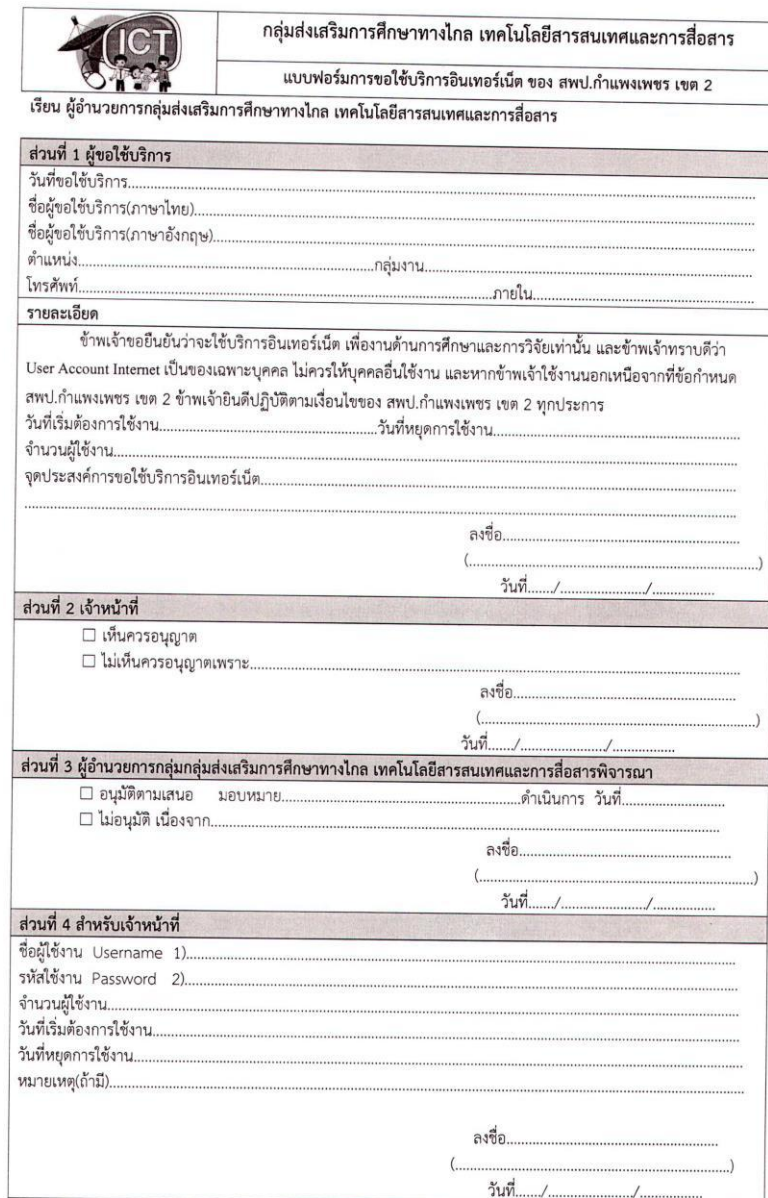 ICT
กลุ่มส่งเสริมการศึกษาทางไกล เทคโนโลยีสารสนเทศและการสื่อสาร
แบบฟอร์มการขอใช้บริการอินเทอร์เน็ต ของ สพป.กำแพงเพชร เขต 2
เรียน ผู้อำนวยการกลุ่มส่งเสริมการศึกษาทางไกล เทคโนโลยีสารสนเทศและการสื่อสาร
ส่วนที่ 1 ผู้ขอใช้บริการ
วันที่ขอใช้บริการ..........
ชื่อผู้ขอใช้บริการ(ภาษาไทย)..........
ชื่อผู้ขอใช้บริการ(ภาษาอังกฤษ)..........
ตำแหน่ง..........กลุ่มงาน..........
โทรศัพท์..........ภายใน..........
รายละเอียด
ข้าพเจ้าขอยืนยันว่าจะใช้บริการอินเทอร์เน็ต เพื่องานด้านการศึกษาและการวิจัยเท่านั้น และข้าพเจ้าทราบดีว่า
User Account Internet เป็นของเฉพาะบุคคล ไม่ควรให้บุคคลอื่นใช้งาน และหากข้าพเจ้าใช้งานนอกเหนือจากที่ข้อกำหนด
สพป.กำแพงเพชร เขต 2 ข้าพเจ้ายินดีปฏิบัติตามเงื่อนไขของ สพป.กำแพงเพชร เขต 2 ทุกประการ
วันที่เริ่มต้องการใช้งาน..........วันที่หยุดการใช้งาน..........
จำนวนผู้ใช้งาน..........
จุดประสงค์การขอใช้บริการอินเทอร์เน็ต..........
..........
ลงชื่อ..........
(..........)
วันที่....../........../..........
ส่วนที่ 2 เจ้าหน้าที่
☐ เห็นควรอนุญาต
☐ ไม่เห็นควรอนุญาตเพราะ..........
ลงชื่อ..........
(..........)
วันที่....../........../..........
ส่วนที่ 3 ผู้อำนวยการกลุ่มกลุ่มส่งเสริมการศึกษาทางไกล เทคโนโลยีสารสนเทศและการสื่อสารพิจารณา
☐ อนุมัติตามเสนอ มอบหมาย..........ดำเนินการ วันที่..........
☐ ไม่อนุมัติ เนื่องจาก..........
ลงชื่อ..........
(..........)
วันที่....../........../..........
ส่วนที่ 4 สำหรับเจ้าหน้าที่
ชื่อผู้ใช้งาน Username 1)..........
รหัสใช้งาน Password 2)..........
จำนวนผู้ใช้งาน..........
วันที่เริ่มต้องการใช้งาน..........
วันที่หยุดการใช้งาน..........
หมายเหตุ(ถ้ามี)..........
ลงชื่อ..........
(..........)
วันที่....../........../..........